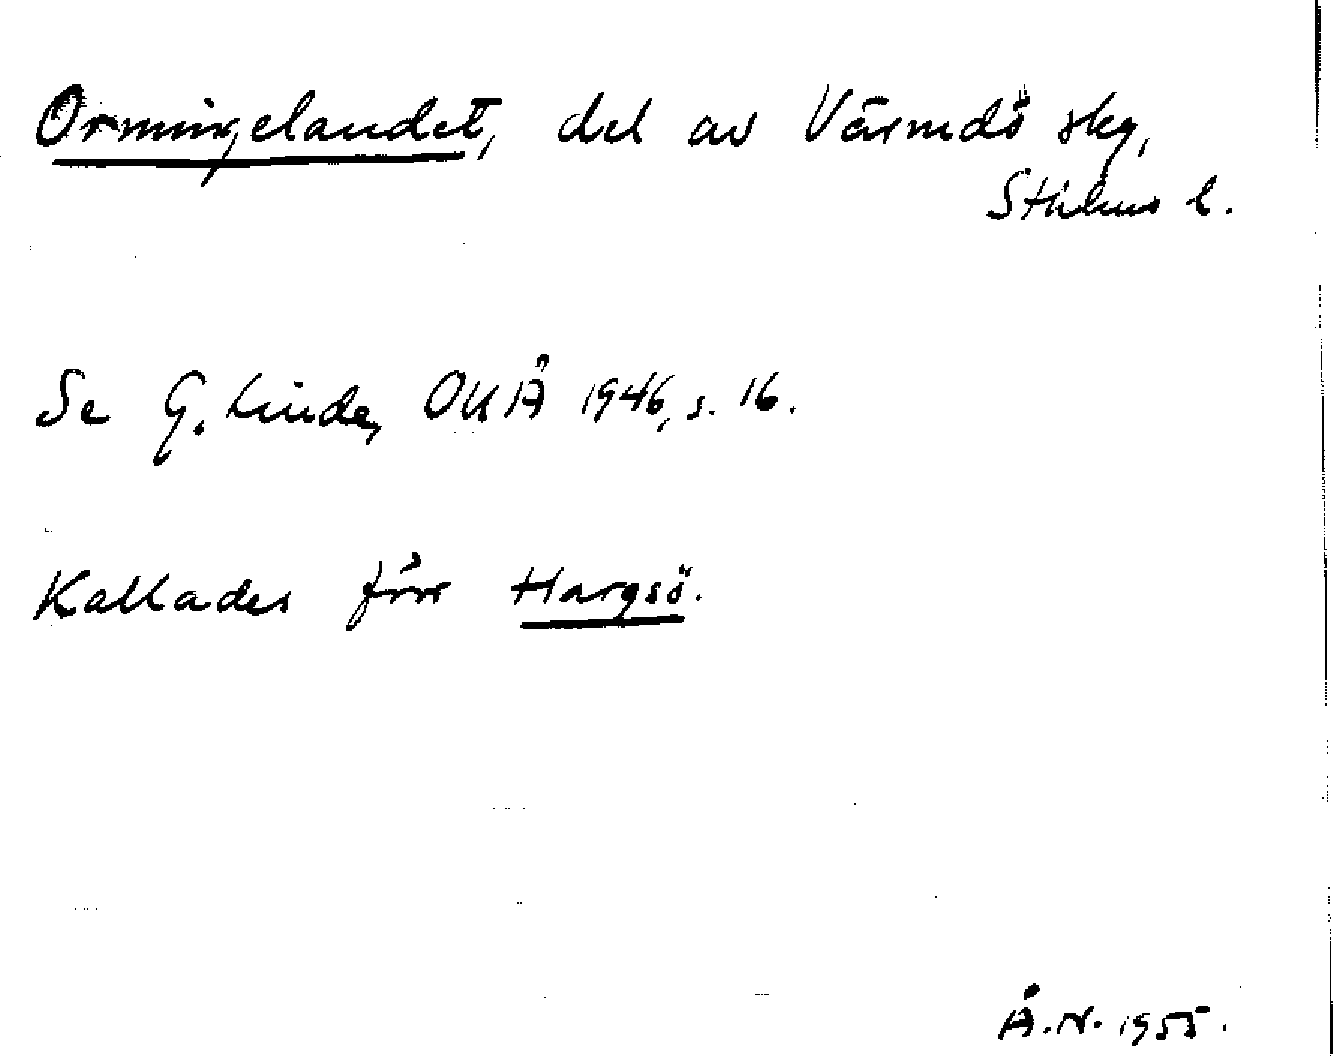 Ormingelandet, del av Värmdö skg,
Sthlms l.
Se G. Linde, OUÅ 1946, s. 16.
Kallades förr Hargsö.
Å.N. 1955.